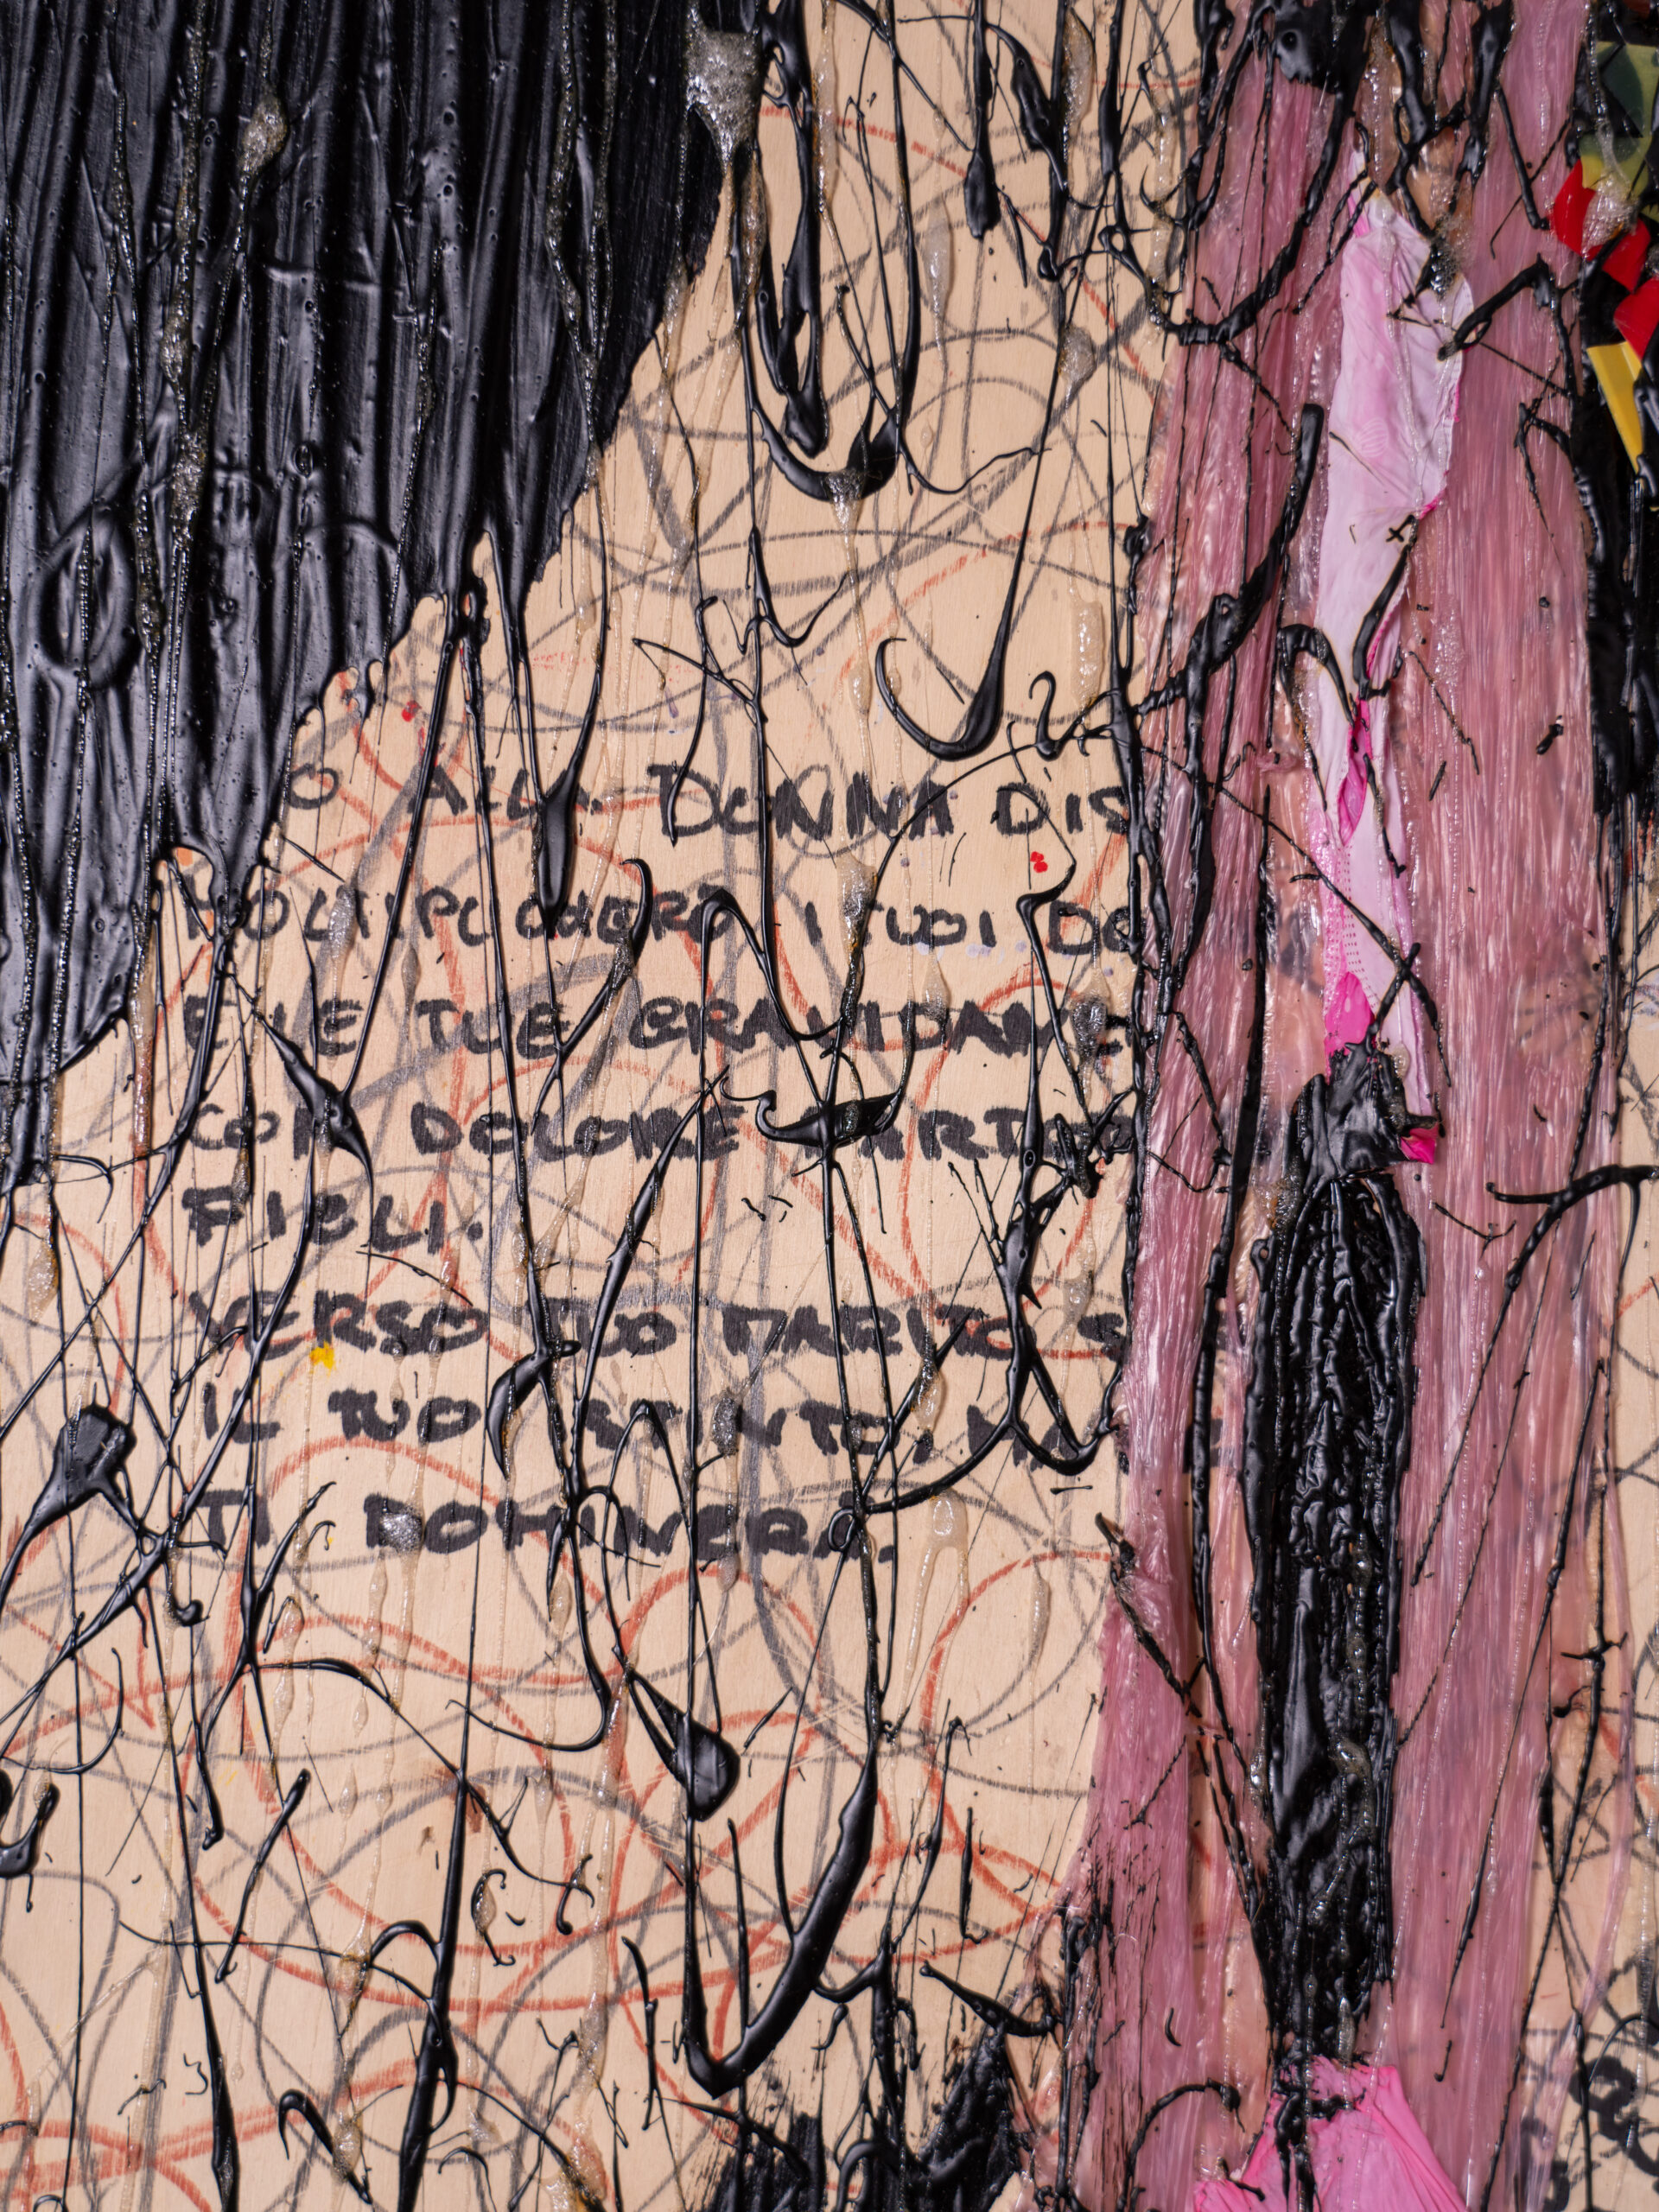 O ALLA DONNA DIS
MOLTIPLICHERÒ I TUOI DO
E LE TUE GRAVIDANZE
CON DOLORE PARTO
FIGLI.
VERSO TUO MARITO S
IL TUO ISTINTO, MA
TI DOMINERÀ.